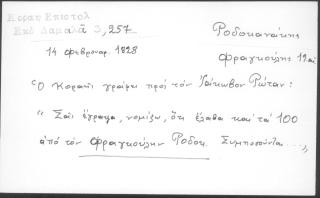 Κοραη Επιστολ
Εκδ Δαμαλᾶ 3, 257
Ροδοκανάκης
Φραγκούλης
14 Φεβρουαρ. 1828
Ὁ Κοραῆς γράφει πρὸς τὸν Ἰάκωβον Ρώταν:
"Σᾶς ἔγραψα, νομίζω, ὅτι ἔλαβα καὶ τὰ 100
ἀπὸ τὸν Φραγκούλην Ροδοκ. Συμποσοῦνται ....."